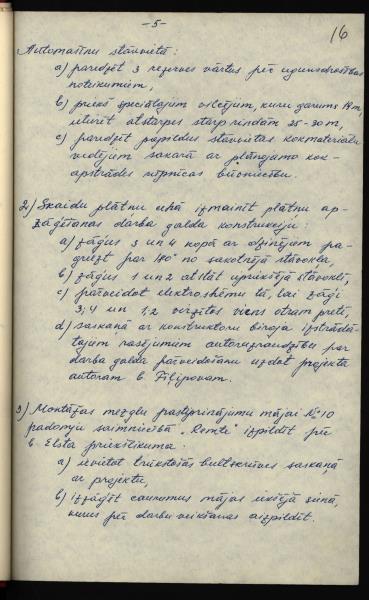 -5-
16
Automašīnu stāvvietā:
a) paredzēt 3 rezerves vārtus pēc ugunsdrošības
noteikumiem,
b) priekš speciālajām vilcējiem, kuru garums 18 m,
ieturēt atstarpes starp rindām 25-30 m,
c) paredzēt papildus stāvvietas kokmateriālu
vedējiem sakarā ar plānojamo kok-
apstrādes rūpnīcas būvniecību.
2) Skaidu plātņu cehā izmainīt plātņu ap-
zāģēšanas darba galda konstrukciju:
a) zāģus 3 un 4 kopā ar dzinējiem pa-
griezt par 180° no sākotnējā stāvokļa,
b) zāģus 1 un 2 atstāt iepriekšējā stāvoklī,
c) pārveidot elektroshēmu tā, lai zāģi
3; 4 un 1; 2 virzītos viens otram pretī,
d) saskaņā ar konstruktoru biroja izstrādā-
tajiem rasējumiem autoruzraudzību par
darba galda pārveidošanu uzdot projekta
autoram b. Filipovam.
3) Montāžas mezglu pastiprinājumu mājai N° 10
padomju saimniecībā "Remte" izpildīt pēc
b. Elsta priekšlikuma:
a) ievietot trūkstošās bultskrūves saskaņā
ar projektu,
b) izzāģēt caurumus mājas iekšējā sienā,
kurus pēc darbu veikšanas aizpildīt.